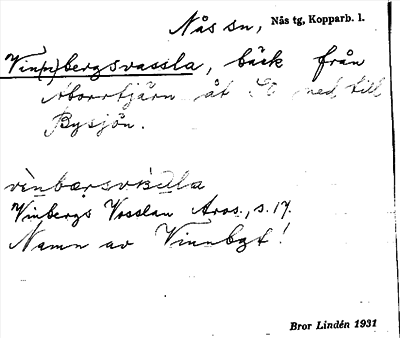 Nås sn, Nås tg, Kopparb. l.
Vin(n)bergsvassla, bäck från
Abborrtjärn åt SO ned till
Bysjön.
Vinbergs Vosslan Aros., s. 17.
Namn av Vinnbgt!
Bror Lindén 1931